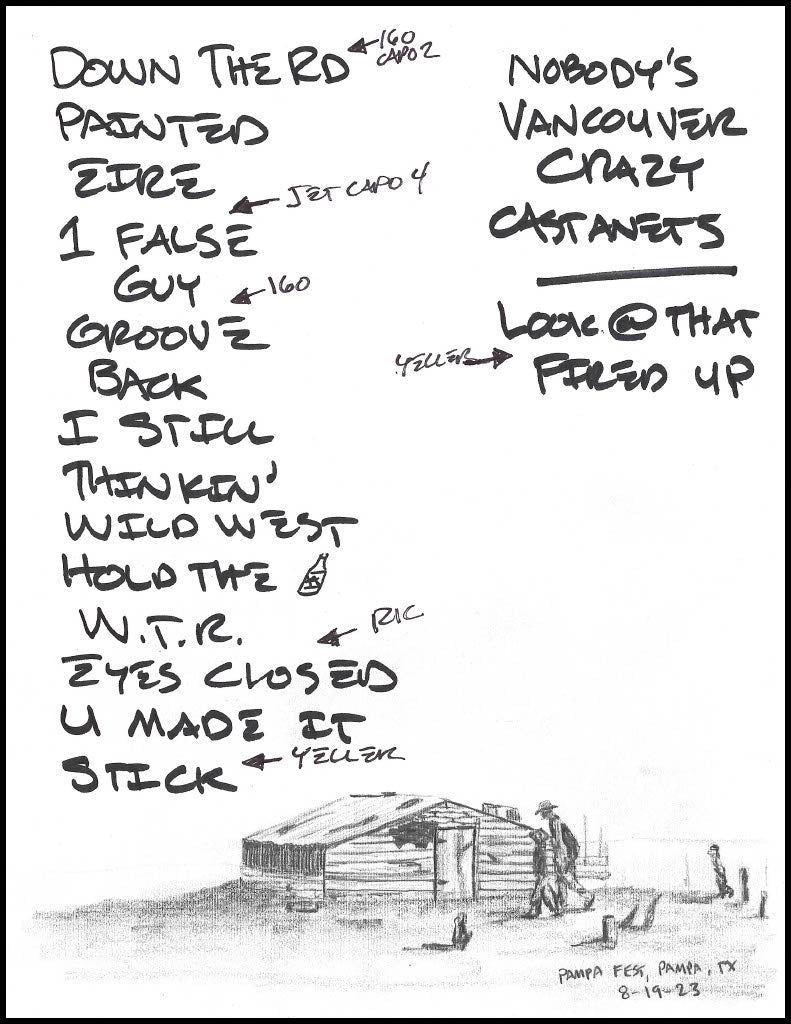 DOWN THE RD
160
CAPO 2
PAINTED
EIRE
JET CAPO 4
1 FALSE
GUY
160
GROOVE
BACK
I STILL
THINKIN'
WILD WEST
HOLD THE
W.T.R.
RIC
EYES CLOSED
U MADE IT
STICK
YELLER
NOBODY'S
VANCOUVER
CRAZY
CASTANETS
LOOK @ THAT
YELLER
FIRED UP
PAMPA FEST, PAMPA, TX
8-19-23